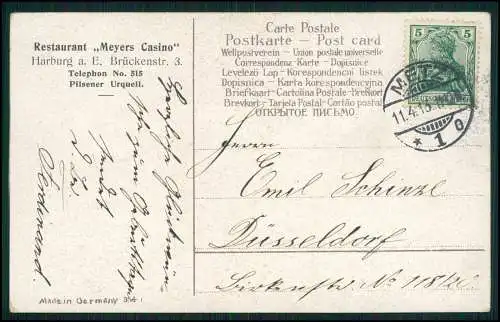 Restaurant „Meyers Casino"
Harburg a. E. Brückenstr. 3.
Telephon No. 515
Pilsener Urquell.
Carte Postale
Postkarte — Post card
Weltpostverein - Union postale universelle
Correspondenz-Karte - Dopisnice
Levelező Lap - Korespondencni listek
Dopisnica - Karta korespondencyjna
Briefkaart - Cartolina Postale - Brefkort
Brevkort - Tarjeta Postal - Cartão postal
ОТКРЫТОЕ ПИСЬМО.
5
5
METZ
11.4.13
* 1 o
Herzliche Glückwünsche
zum Geburtstage
sendet
Ferdinand.
Herrn
Emil Schinze
Düsseldorf
Birkenstr. No 118/20
Made in Germany